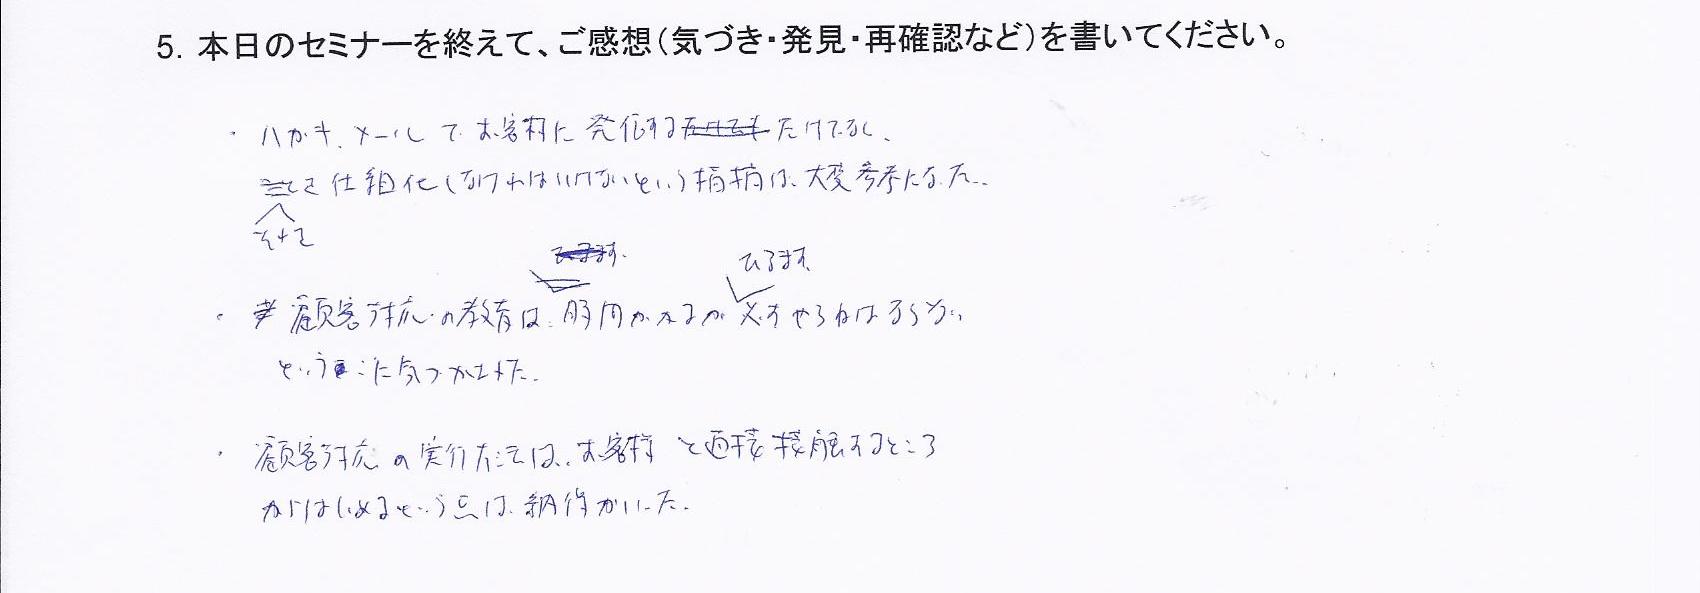 5. 本日のセミナーを終えて、ご感想（気づき・発見・再確認など）を書いてください。
・ハガキ、メールでお客様に発信するだけでなく、
仕組化しなければいけないという指摘は、大変参考になった。
そして
ひるまず
・顧客対応の教育は、時間がかかるが必ずやらねばならない
という事に気づかされた。
・顧客対応の実行方法は、お客様と直接接触するところ
からはじめるという点は、納得がいった。